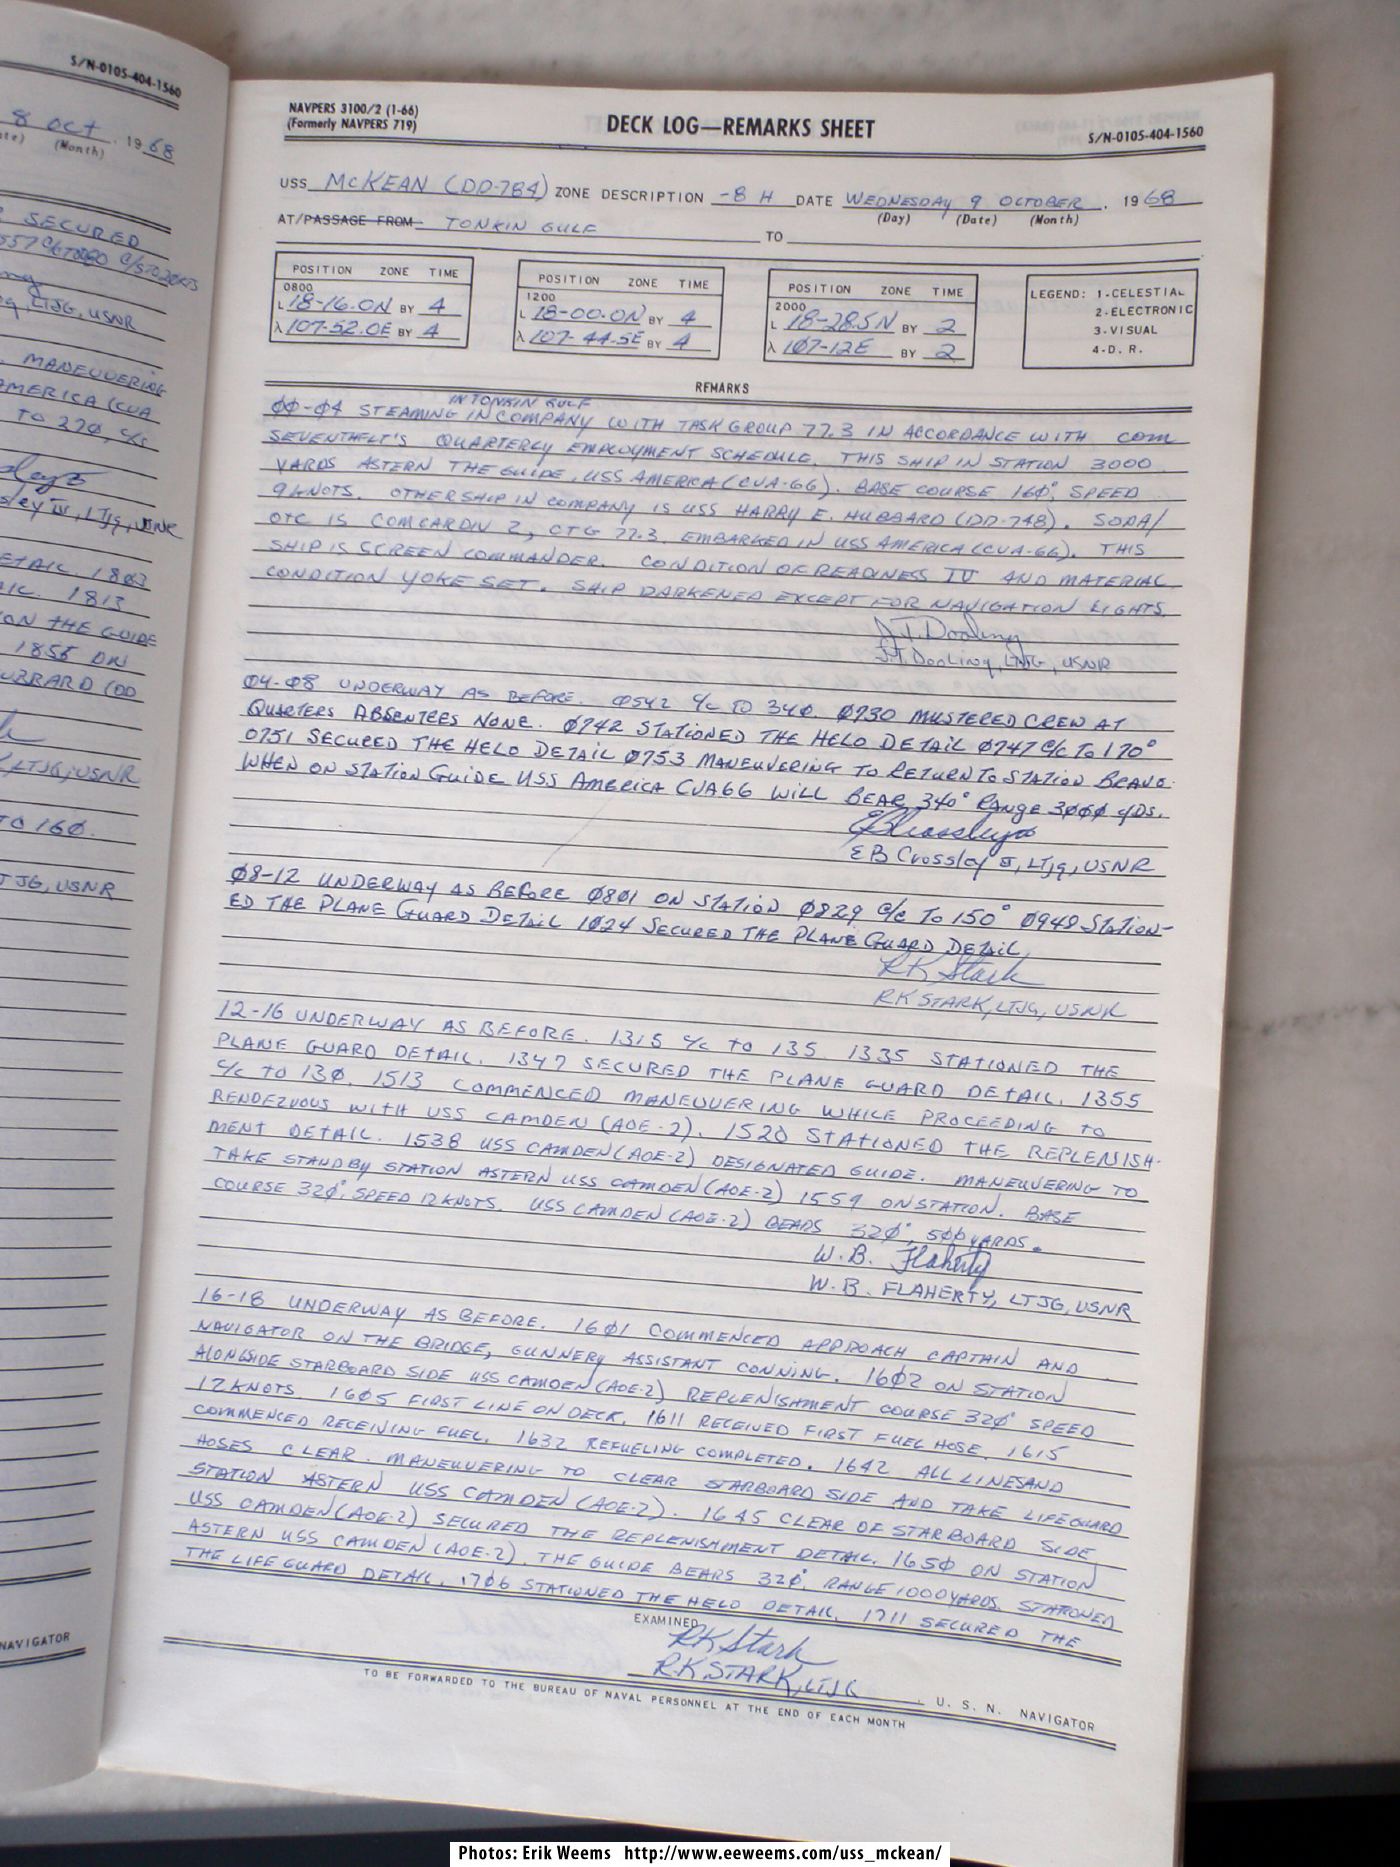 S/N-0105-404-1560
8 OCT 1968
(Month)
SECURED
MANEUVERING
AMERICA (CVA
TO 270, C/C
LTJG, USNR
DETAIL 1803
1813
ON THE GUIDE
1855 ON
HUBBARD (DD
LTJG, USNR
TO 160.
LTJG, USNR
NAVIGATOR
NAVPERS 3100/2 (1-66)
(Formerly NAVPERS 719)
DECK LOG—REMARKS SHEET
S/N-0105-404-1560
USS McKEAN (DD-784) ZONE DESCRIPTION -8 H DATE WEDNESDAY 9 OCTOBER, 1968
(Day) (Date) (Month)
AT/PASSAGE FROM TONKIN GULF TO
POSITION ZONE TIME
0800
L 18-16.0N BY 4
λ 107-52.0E BY 4
POSITION ZONE TIME
1200
L 18-00.0N BY 4
λ 107-44.5E BY 4
POSITION ZONE TIME
2000
L 18-28.5N BY 2
λ 107-12E BY 2
LEGEND: 1-CELESTIAL
2-ELECTRONIC
3-VISUAL
4-D. R.
REMARKS
IN TONKIN GULF
00-04 STEAMING IN COMPANY WITH TASK GROUP 77.3 IN ACCORDANCE WITH COM
SEVENTHFLT'S QUARTERLY EMPLOYMENT SCHEDULE. THIS SHIP IN STATION 3000
YARDS ASTERN THE GUIDE, USS AMERICA (CVA-66). BASE COURSE 160°, SPEED
9 KNOTS. OTHER SHIP IN COMPANY IS USS HARRY E. HUBBARD (DD-748). SOPA/
OTC IS COMCARDIV 2, CTG 77.3 EMBARKED IN USS AMERICA (CVA-66). THIS
SHIP IS SCREEN COMMANDER. CONDITION OF READINESS IV AND MATERIAL
CONDITION YOKE SET. SHIP DARKENED EXCEPT FOR NAVIGATION LIGHTS.
J.T. Dooling
J.T. Dooling, LTJG, USNR
04-08 UNDERWAY AS BEFORE. 0542 C/C TO 340. 0730 MUSTERED CREW AT
QUARTERS ABSENTEES NONE. 0742 STATIONED THE HELO DETAIL 0747 C/C TO 170°
0751 SECURED THE HELO DETAIL 0753 MANEUVERING TO RETURN TO STATION BRAVO.
WHEN ON STATION GUIDE USS AMERICA CVA66 WILL BEAR 340° RANGE 3000 YDS.
EB Crossley II
EB Crossley II, LTjg, USNR
08-12 UNDERWAY AS BEFORE 0801 ON STATION 0829 C/C TO 150° 0948 STATION-
ED THE PLANE GUARD DETAIL 1024 SECURED THE PLANE GUARD DETAIL
RK Stark
RK STARK, LTJG, USNR
12-16 UNDERWAY AS BEFORE. 1315 C/C TO 135. 1335 STATIONED THE
PLANE GUARD DETAIL. 1347 SECURED THE PLANE GUARD DETAIL. 1355
C/C TO 130. 1513 COMMENCED MANEUVERING WHILE PROCEEDING TO
RENDEZVOUS WITH USS CAMDEN (AOE-2). 1520 STATIONED THE REPLENISH-
MENT DETAIL. 1538 USS CAMDEN (AOE-2) DESIGNATED GUIDE. MANEUVERING TO
TAKE STANDBY STATION ASTERN USS CAMDEN (AOE-2) 1559 ON STATION. BASE
COURSE 320°, SPEED 12 KNOTS. USS CAMDEN (AOE-2) BEARS 320°, 500 YARDS.
W. B. Flaherty
W. B. FLAHERTY, LTJG, USNR
16-18 UNDERWAY AS BEFORE. 1601 COMMENCED APPROACH CAPTAIN AND
NAVIGATOR ON THE BRIDGE, GUNNERY ASSISTANT CONNING. 1602 ON STATION
ALONGSIDE STARBOARD SIDE USS CAMDEN (AOE-2) REPLENISHMENT COURSE 320° SPEED
12 KNOTS. 1605 FIRST LINE ON DECK. 1611 RECEIVED FIRST FUEL HOSE. 1615
COMMENCED RECEIVING FUEL. 1632 REFUELING COMPLETED. 1642 ALL LINES AND
HOSES CLEAR. MANEUVERING TO CLEAR STARBOARD SIDE AND TAKE LIFEGUARD
STATION ASTERN USS CAMDEN (AOE-2). 1645 CLEAR OF STARBOARD SIDE
USS CAMDEN (AOE-2) SECURED THE REPLENISHMENT DETAIL. 1650 ON STATION
ASTERN USS CAMDEN (AOE-2). THE GUIDE BEARS 320°, RANGE 1000 YARDS. STATIONED
THE LIFE GUARD DETAIL. 1706 STATIONED THE HELO DETAIL. 1711 SECURED THE
EXAMINED
RK Stark
R.K STARK, LTJG, U. S. N. NAVIGATOR
TO BE FORWARDED TO THE BUREAU OF NAVAL PERSONNEL AT THE END OF EACH MONTH
Photos: Erik Weems http://www.eeweems.com/uss_mckean/